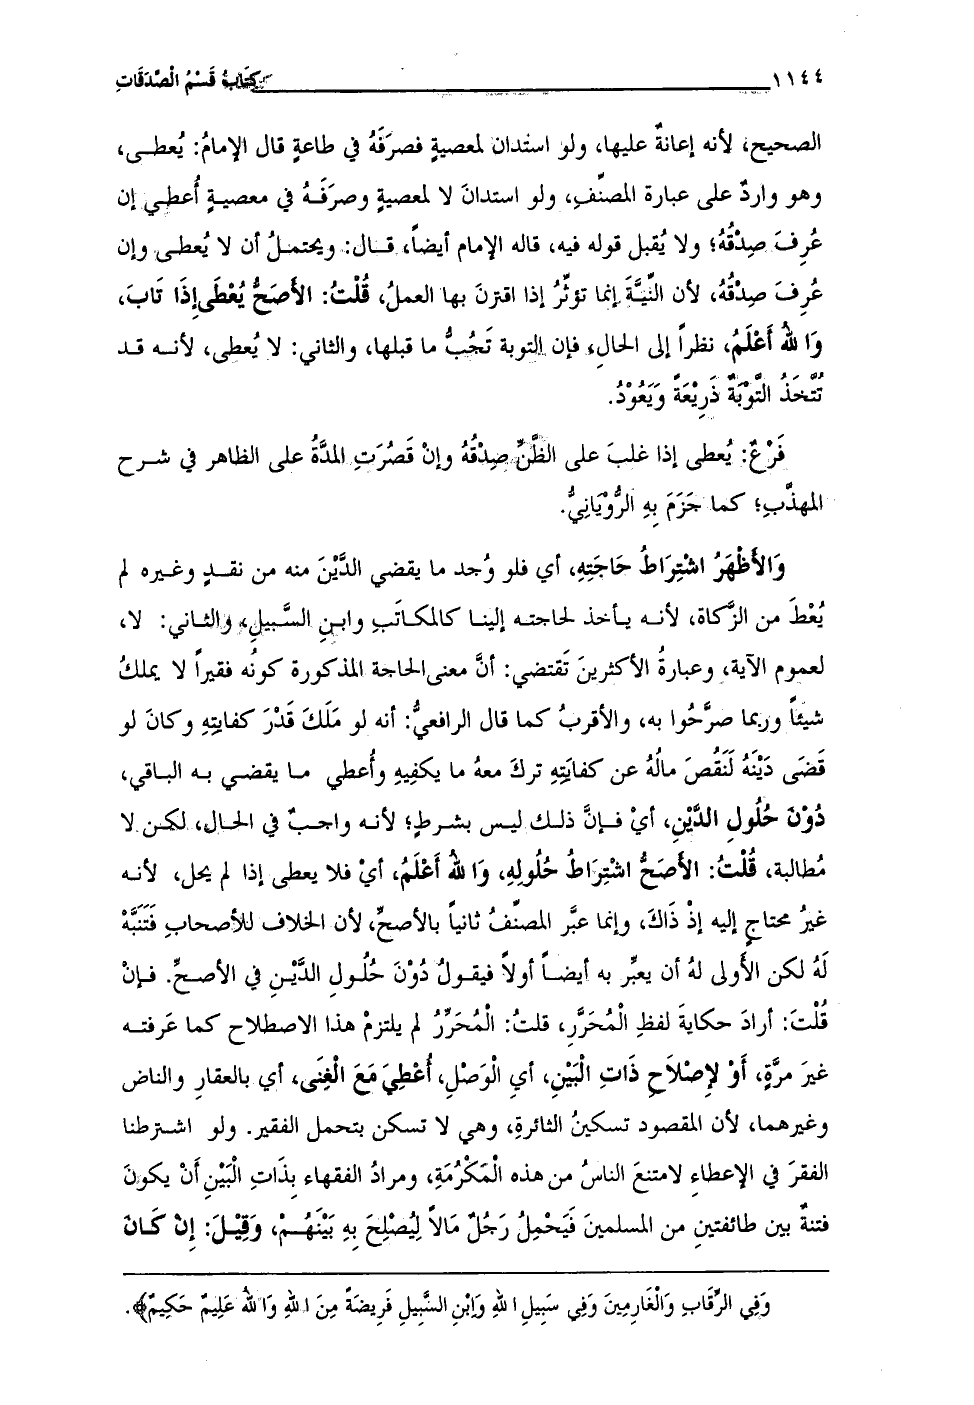 ١١٤٤ كِتَابُ قَسْمِ الْصَّدَقَاتِ
الصحيح، لأنه إعانةٌ عليها، ولو استدان لمعصيةٍ فصرَفَهُ في طاعةٍ قال الإمامُ: يُعطى،
وهو واردٌ على عبارة المصنِّفِ، ولو استدانَ لا لمعصيةٍ وصرَفَهُ في معصيةٍ أُعطي إن
عُرِفَ صِدْقُهُ؛ ولا يُقبل قوله فيه، قاله الإمام أيضاً، قال: ويحتملُ أن لا يُعطى وإن
عُرِفَ صِدْقُهُ، لأن النِّيَّةَ إنما تؤثِّرُ إذا اقترنَ بها العملُ، قُلْتُ: الأَصَحُّ يُعْطَى إِذَا تَابَ،
وَا للهُ أَعْلَمُ، نظراً إلى الحالِ، فإن التوبة تَجُبُّ ما قبلها، والثاني: لا يُعطى، لأنه قد
تُتَّخَذُ التَّوْبَةُ ذَرِيْعَةً وَيَعُوْدُ.
فَرْعٌ: يُعطى إذا غلبَ على الظَّنِّ صِدْقُهُ وإنْ قَصُرَتِ المدَّةُ على الظاهر في شرح
المهذَّبِ؛ كما جَزَمَ بِهِ الرُّوْيَانِيُّ.
وَالأَظْهَرُ اشْتِرَاطُ حَاجَتِهِ، أي فلو وُجد ما يقضي الدَّيْنَ منه من نقدٍ وغيره لم
يُعْطَ من الزَّكاة، لأنه يأخذ لحاجته إلينا كالمكاتَبِ وابنِ السَّبيلِ، والثاني: لا،
لعموم الآية، وعبارةُ الأكثرينَ تَقتضي: أنَّ معنى الحاجة المذكورة كونُه فقيراً لا يملكُ
شيئاً وربما صرَّحُوا به، والأقربُ كما قال الرافعيُّ: أنه لو مَلَكَ قَدْرَ كفايتِهِ وكانَ لو
قَضَى دَيْنَهُ لَنَقُصَ مالُهُ عن كفايَتِهِ تركَ معهُ ما يكفِيهِ وأُعطي ما يقضي به الباقي،
دُوْنَ حُلُولِ الدَّيْنِ، أيْ فإنَّ ذلك ليس بشرطٍ؛ لأنه واجبٌ في الحال، لكن لا
مُطالبة، قُلْتُ: الأَصَحُّ اشْتِرَاطُ حُلُولِهِ، وَا للهُ أَعْلَمُ، أيْ فلا يعطى إذا لم يحل، لأنه
غيرُ محتاجٍ إليه إذْ ذَاكَ، وإنما عبَّر المصنِّفُ ثانياً بالأصحِّ، لأن الخلاف للأصحابِ فَتَنَبَّهْ
لَهُ لكن الأَولى لهُ أن يعبِّر به أيضاً أولاً فيقولُ دُوْنَ حُلُولِ الدَّيْنِ في الأصحِّ. فإنْ
قُلْتَ: أرادَ حكايةَ لفظِ الْمُحَرَّرِ، قلتُ: الْمُحَرِّرُ لم يلتزمْ هذا الاصطلاح كما عَرفته
غيرَ مرَّةٍ، أَوْ لِإصْلَاحِ ذَاتِ الْبَيْنِ، أيِ الْوَصْلِ، أُعْطِيَ مَعَ الْغِنَى، أي بالعقارِ والناض
وغيرهما، لأن المقصود تسكينُ الثائرةِ، وهي لا تسكن بتحمل الفقير. ولو اشترطنا
الفقرَ في الإعطاءِ لامتنعَ الناسُ من هذه الْمَكْرُمَةِ، ومرادُ الفقهاء بِذَاتِ الْبَيْنِ أَنْ يكونَ
فتنةٌ بين طائفتينِ من المسلمينَ فَيَحْمِلُ رَجُلٌ مَالاً لِيُصْلِحَ بِهِ بَيْنَهُمْ، وَقِيْلَ: إِنْ كَانَ
وَفِي الرِّقَابِ وَالْغَارِمِينَ وَفِي سَبِيلِ ا للهِ وَابْنِ السَّبِيلِ فَرِيضَةً مِنَ ا للهِ وَا للهُ عَلِيمٌ حَكِيمٌ﴾.